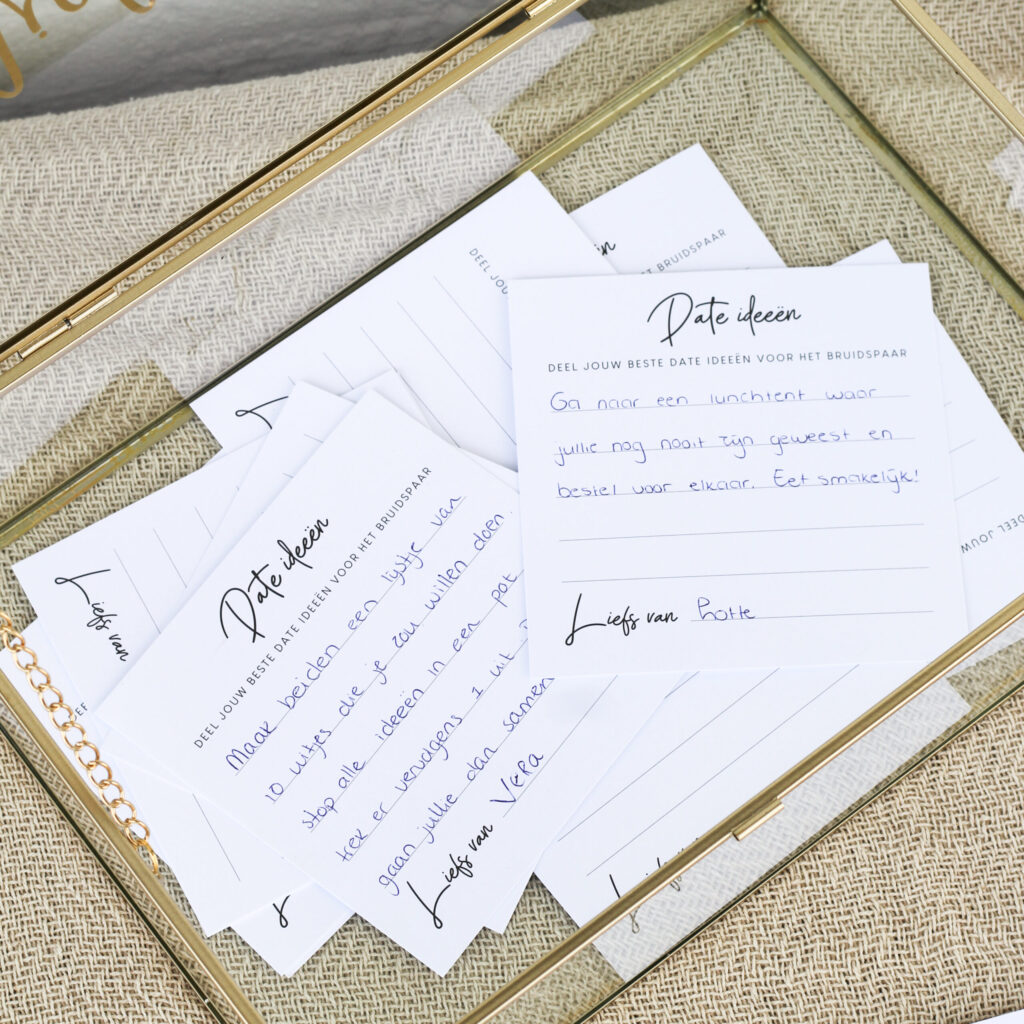 Date ideeën
DEEL JOUW BESTE DATE IDEEËN VOOR HET BRUIDSPAAR
Ga naar een lunchtent waar
jullie nog nooit zijn geweest en
bestel voor elkaar. Eet smakelijk!
Liefs van Lotte
Date ideeën
DEEL JOUW BESTE DATE IDEEËN VOOR HET BRUIDSPAAR
Maak beiden een lijstje van
10 uitjes die je zou willen doen.
Stop alle ideeën in een pot
trek er vervolgens 1 uit
gaan jullie dan samen
Liefs van VERA
Liefs van
DEEL JOU
BRUIDSPAAR
DEEL JOUW